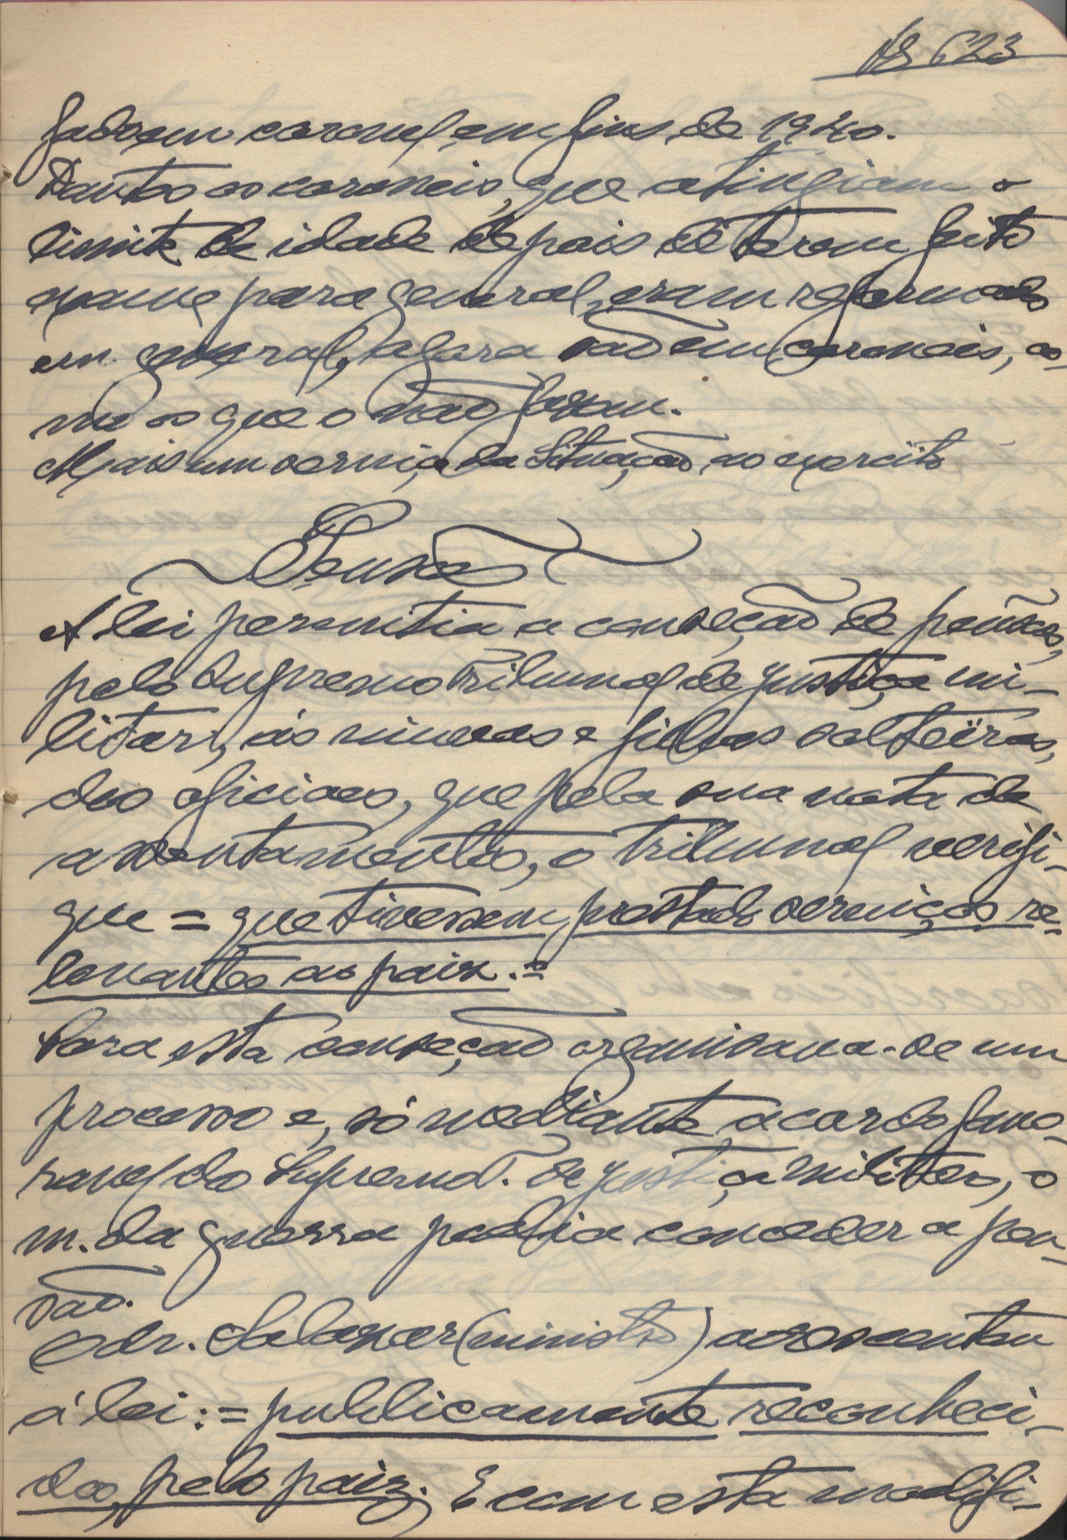 623
em coronel em fins de 1940.
Dantes os coroneis, que atingiam o
limite de idade depois de terem feito
exame para general, eram reformados
em general, agora são em coroneis, co-
mo os que o não fizeram.
Mais um serviço da Situação ao exercito
Pensões
A lei permitia a conseção de pensões,
pelo Supremo Tribunal de justiça mi-
litar, ás viuvas e filhas solteiras,
dos oficiaes, que pela sua nota de
assentamentos, o tribunal verifi-
que = que tivessem prestado serviços re-
levantes ao paiz. =
Para esta conseção organisava-se um
processo e, só mediante acordo favo-
ravel do Supremo T. de justiça militar, o
m. da guerra podia conceder a pen-
são.
O dr. Salazar (ministro) acrescentou
á lei: = publicamente reconheci-
dos pelo paiz. E com esta modifi-